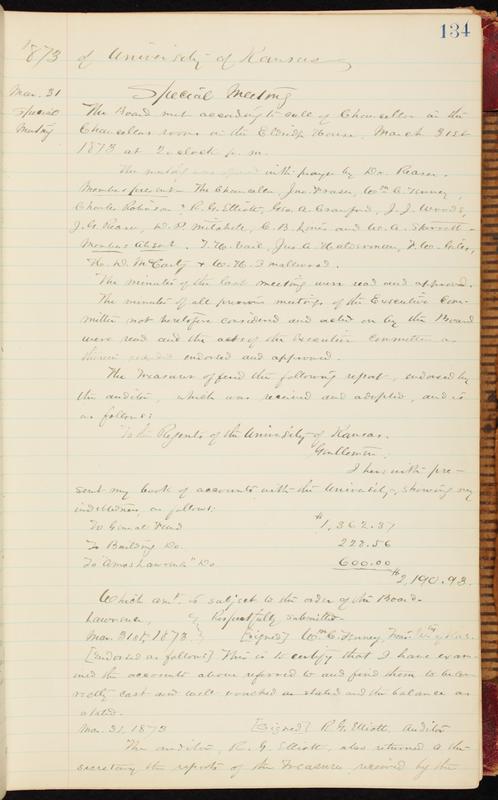 134
1873 of University of Kansas
Mar. 31 Special Meeting
Special Meeting
The Board met according to call of Chancellor in the
Chancellor's room in the Eldridge House, March 31st
1873 at 2 o'clock p.m.
The meeting was opened with prayer by Dr. Reaser.
Members present – The Chancellor, Jno. Fraser, Wm. C. Tenney,
Charles Robinson, R. G. Elliott, Geo. A. Crawford, J. J. Woods,
J. G. Reaser, D. P. Mitchell, C. B. Lines and W. A. Starrett –
Members Absent. T. H. Vail, Jas. A. Halderman, F. W. Giles,
N. D. McCarty & W. H. Smallwood.
The minutes of the last meeting were read and approved.
The minutes of all previous meetings of the Executive Com-
mittee not heretofore considered and acted on by the Board
were read and the acts of the Executive Committee as
therein recorded endorsed and approved.
The Treasurer offered the following report, endorsed by
the auditor, which was received and adopted, and is
as follows:
To the Regents of the University of Kansas.
Gentlemen:
I herewith pre-
sent my book of accounts with the University, showing my
indebtedness, as follows:
To General Fund $1,362.37
To Building Do. 228.56
To "Amos Lawrence" Do 600.00
$2,190.93.
Which amt. is subject to the order of the Board.
Lawrence, } Respectfully submitted.
Mar. 31st, 1873 } [Signed] Wm. C. Tenney, Treas. Univ of Kas.
[Endorsed as follows] This is to certify that I have exam-
ined the accounts above referred to and find them to be cor-
rectly cast and well vouched as stated and the balance as
stated.
Mar. 31, 1873 [Signed] R. G. Elliott, Auditor
The auditor, R. G. Elliott, also returned to the
secretary the reports of the Treasurer, received by the